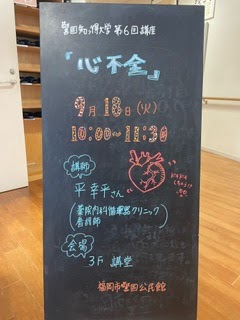 警固知っ得大学 第6回講座
「心不全」
9月18日(火)
10:00~11:30
講師
平 幸平さん
(薬院内科循環器クリニック
看護師)
会場
3F 講堂
福岡市警固公民館